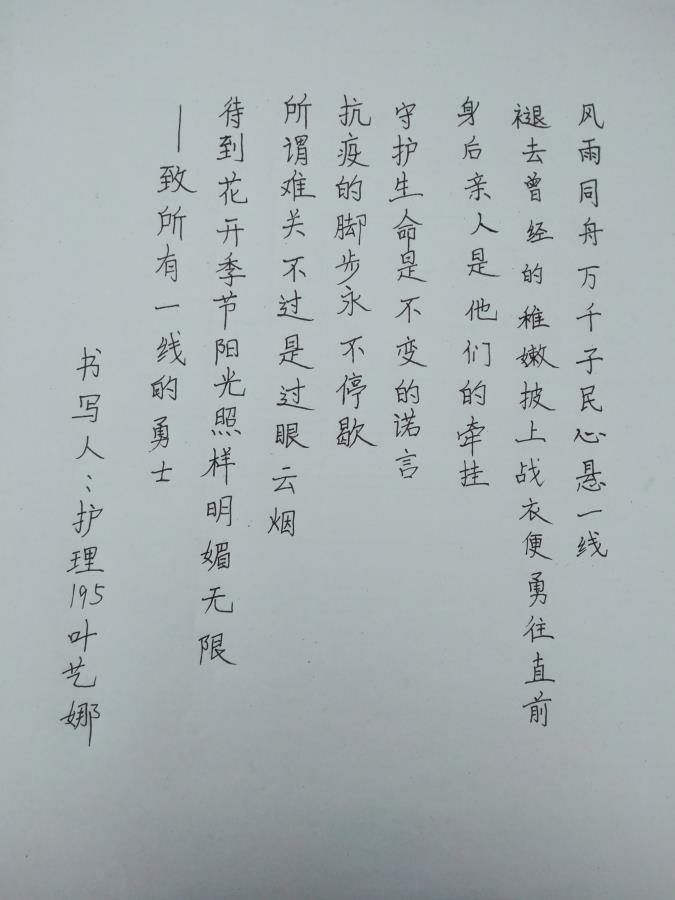 风雨同舟万千子民心悬一线
褪去曾经的稚嫩披上战衣便勇往直前
身后亲人是他们的牵挂
守护生命是不变的诺言
抗疫的脚步永不停歇
所谓难关不过是过眼云烟
待到花开季节阳光照样明媚无限
—致所有一线的勇士
书写人:护理195叶艺娜